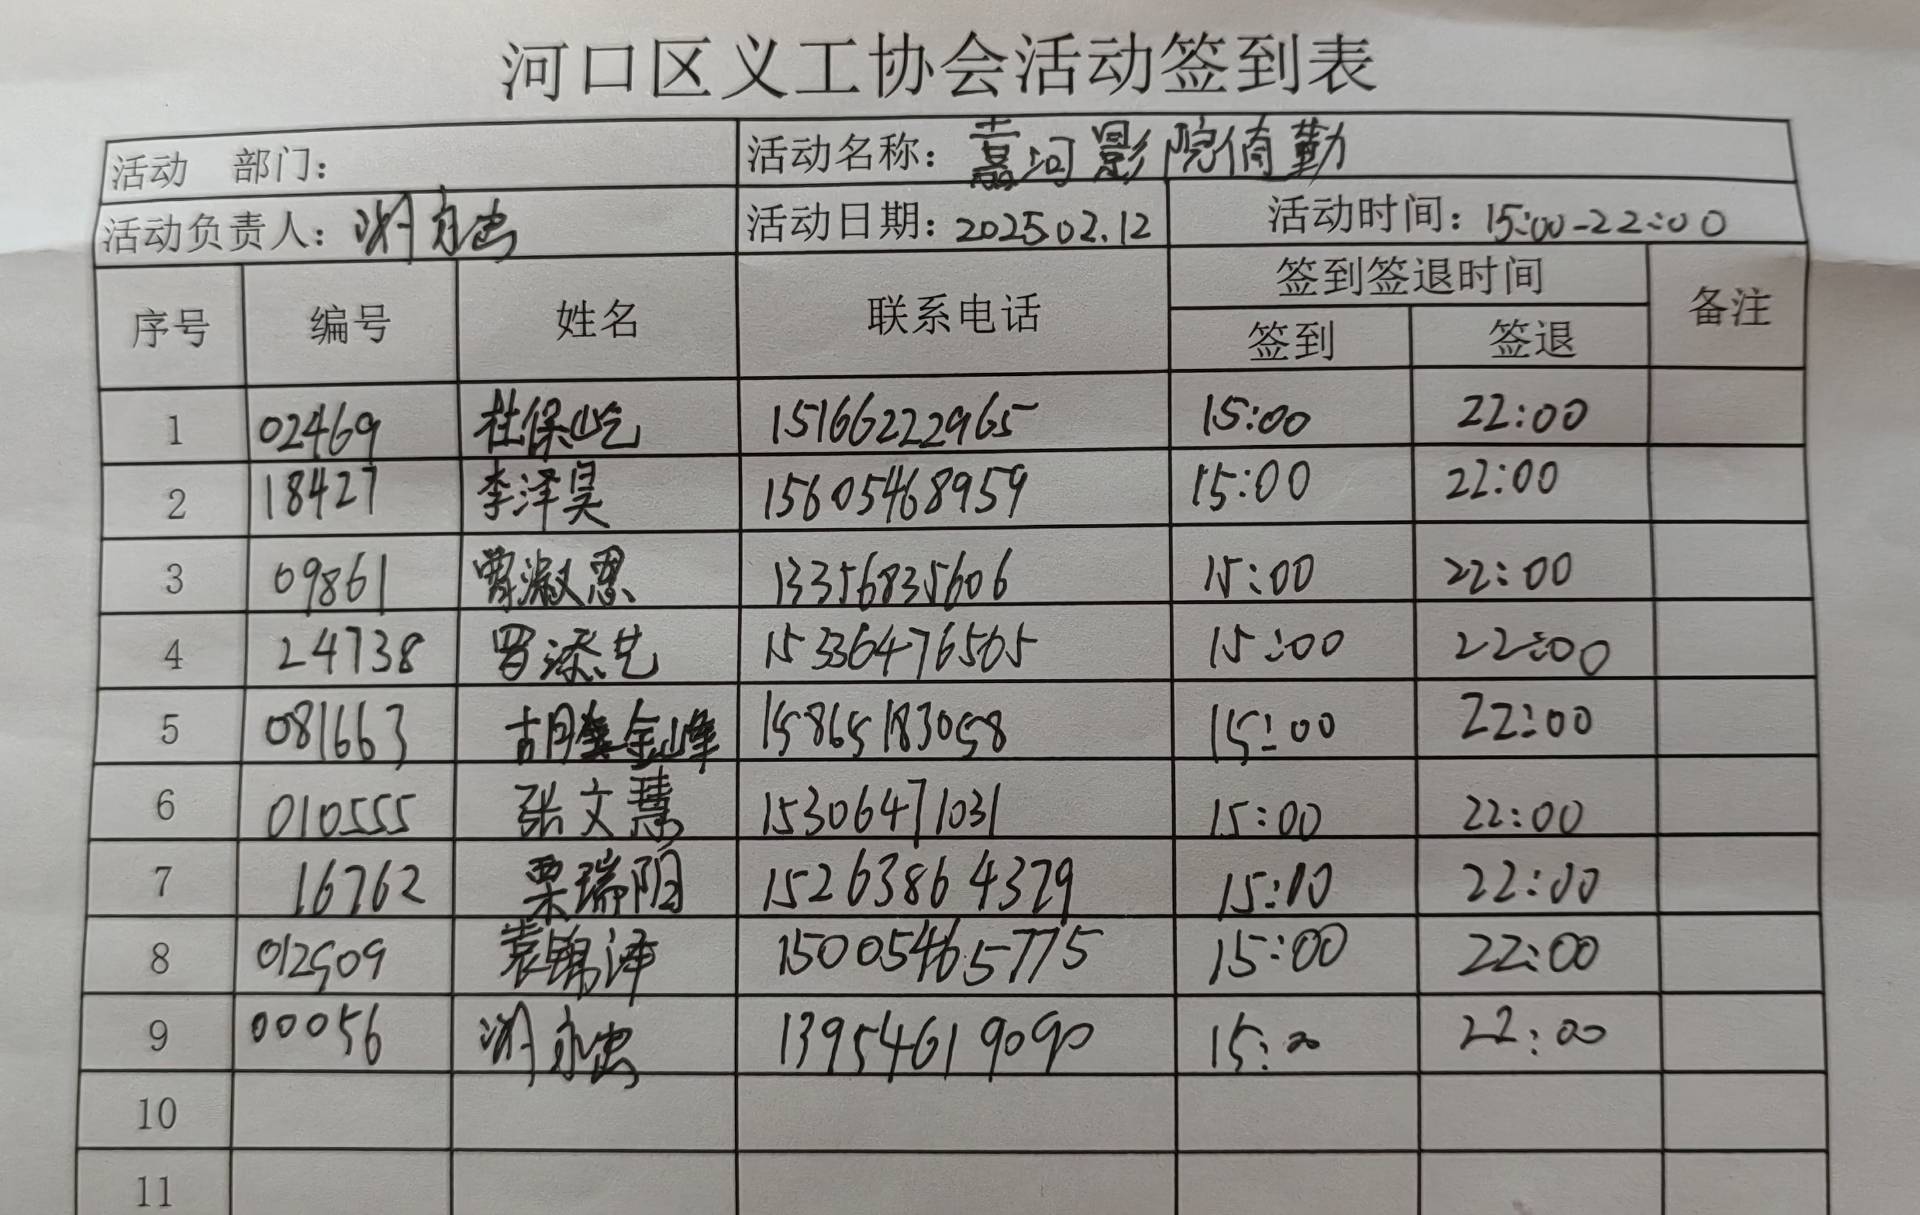 河口区义工协会活动签到表
活动 部门：
活动名称：嘉河影院值勤
活动负责人：
活动日期：2025.02.12
活动时间：15:00-22:00
序号 编号 姓名 联系电话 签到签退时间 备注
签到 签退
1 02469 杜保屹 15166222965 15:00 22:00
2 18427 李泽昊 15605468959 15:00 22:00
3 09861 曹淑恩 13356835606 15:00 22:00
4 24738 罗添艺 15336476505 15:00 22:00
5 081663 胡金峰 15865183058 15:00 22:00
6 010555 张文慧 15306471031 15:00 22:00
7 16762 栗瑞阳 15263864329 15:00 22:00
8 012909 袁锦泽 15005465775 15:00 22:00
9 00056 13954619090 15:00 22:00
10
11